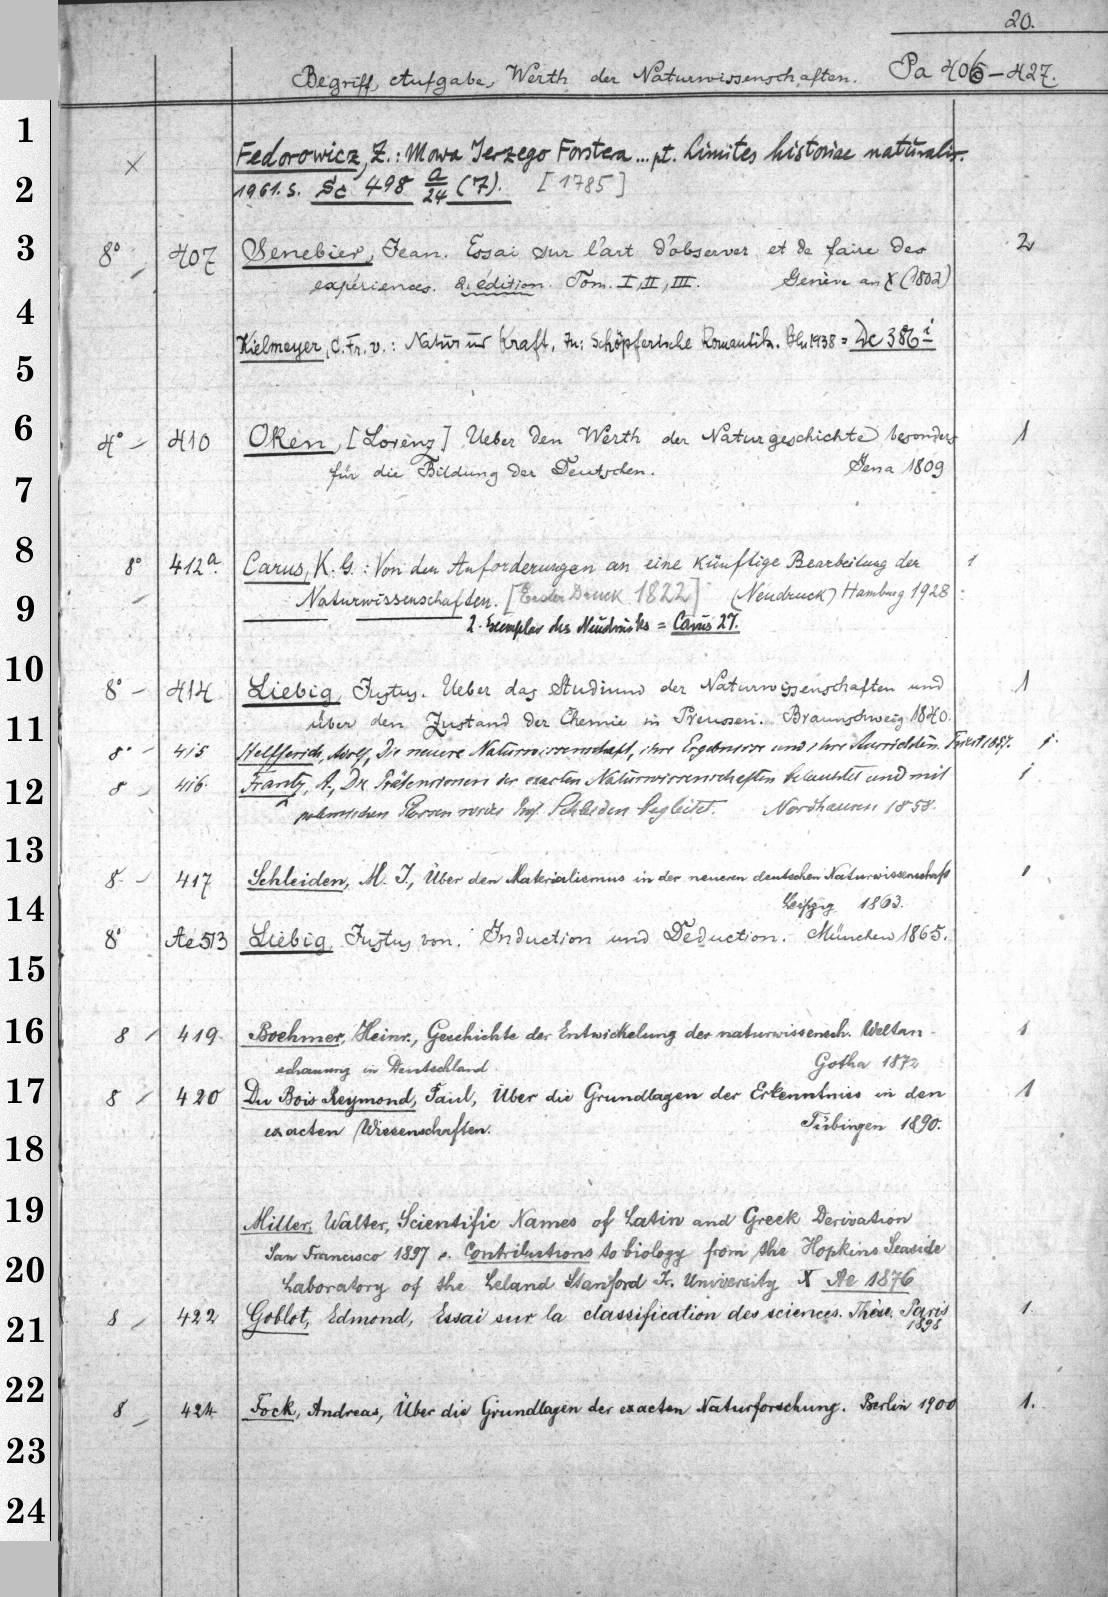 20.
Begriff, Aufgabe, Werth der Naturwissenschaften. Pa 406–427.
1
× Fedorowicz, Z.: Mowa Jerzego Forstera ... pt. Limites historiae naturalis.
2
1961. S. Sc 498 a/24 (7). [1785]
3
8° 407 Senebier, Jean. Essai sur l'art d'observer et de faire des 2
expériences. 2. édition. Tom. I, II, III. Genève an X (1802)
4
Kielmeyer, C. Fr. v.: Natur und Kraft. In: Schöpferische Romantik. Bln 1938 = Dc 386 i
5
6
4° – 410 Oken, [Lorenz] Ueber den Werth der Naturgeschichte besonders 1
für die Bildung der Deutschen. Jena 1809
7
8
8° 412a. Carus, K. G.: Von den Anforderungen an eine künftige Bearbeitung der 1
9
Naturwissenschaften. [Erster Druck 1822] (Neudruck) Hamburg 1928
2. Exemplar des Neudrucks = Carus 27.
10
8° – 414 Liebig, Justus. Ueber das Studium der Naturwissenschaften und 1
11
über den Zustand der Chemie in Preussen. Braunschweig 1840.
8° 415 Helfferich, Adolf, Die neuere Naturwissenschaft, ihre Ergebnisse und ihre Aussichten. Triest 1857. 1
12
8 416. Frantz, A., Die Prätensionen der exacten Naturwissenschaften beleuchtet und mit 1
polemischen Glossen wider Hrn. Schleiden begleitet. Nordhausen 1858.
13
8 – 417 Schleiden, M. J., Über den Materialismus in der neueren deutschen Naturwissenschaft 1
14
Leipzig 1863.
8° Ae 513 Liebig, Justus von. Induction und Deduction. München 1865.
15
16
8 419. Boehmer, Heinr., Geschichte der Entwickelung der naturwissensch. Weltan- 1
schauung in Deutschland. Gotha 1872
17
8 420 Du Bois Reymond, Paul, Über die Grundlagen der Erkenntniss in den 1
exacten Wissenschaften. Tübingen 1890.
18
19
Miller, Walter, Scientific Names of Latin and Greek Derivation
San Francisco 1897 Contributions to biology from the Hopkins Seaside
20
Laboratory of the Leland Stanford Jr. University X Ae 1876
21
8 422 Goblot, Edmond, Essai sur la classification des sciences. Thèse. Paris 1.
1898
22
8 424 Fock, Andreas, Über die Grundlagen der exacten Naturforschung. Berlin 1900 1.
23
24